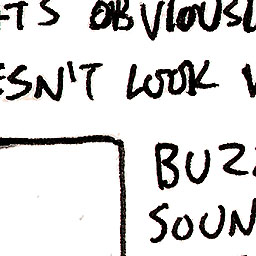 OBVIOUSL
ESN'T LOOK
BUZZ
SOUN